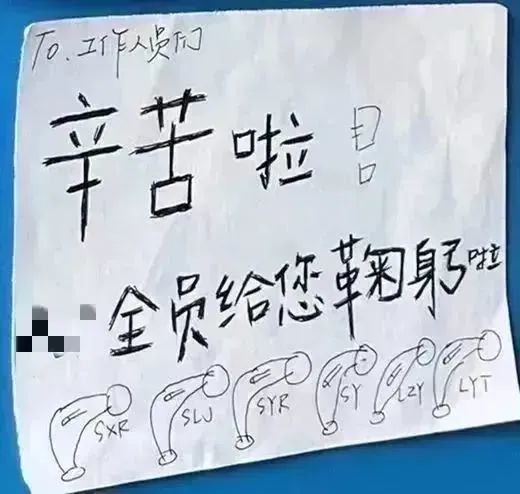 To. 工作人员们
辛苦啦!
全员给您鞠躬啦
SXR SLJ SYR SY LZY LYT